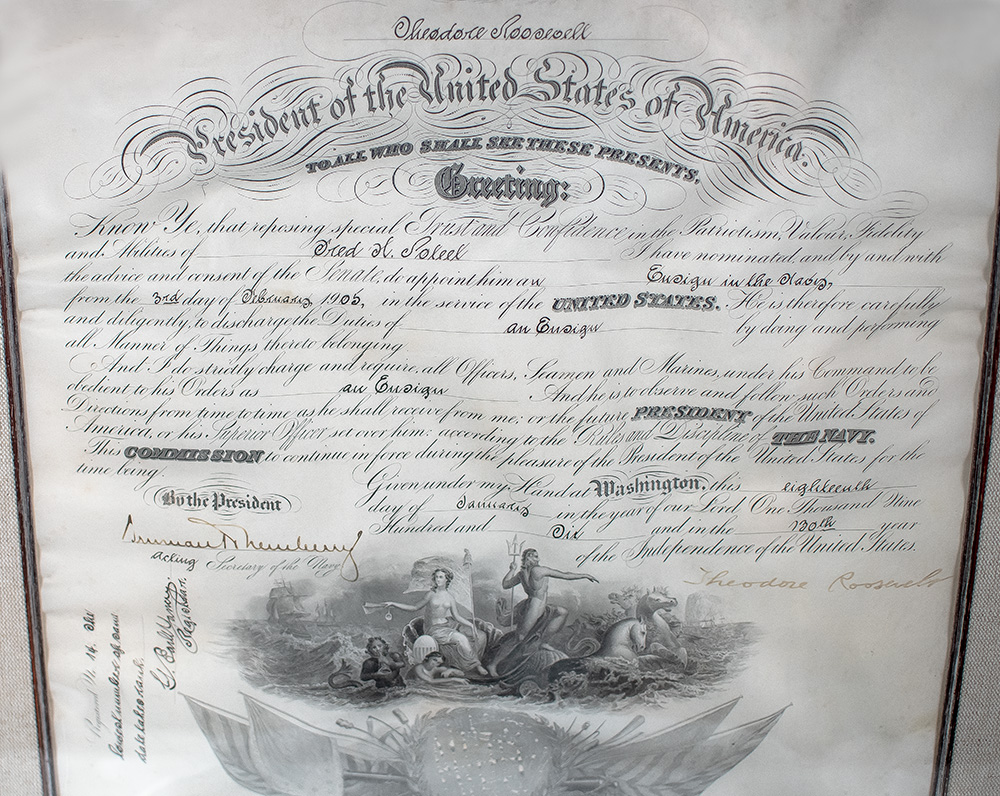 Theodore Roosevelt
President of the United States of America.
TO ALL WHO SHALL SEE THESE PRESENTS,
Greeting:
Know Ye, that reposing special Trust and Confidence in the Patriotism, Valour, Fidelity
and Abilities of Fred H. Poteet I have nominated, and by and with
the advice and consent of the Senate, do appoint him an Ensign in the Navy,
from the 3rd day of February, 1905, in the service of the UNITED STATES. He is therefore carefully
and diligently, to discharge the Duties of an Ensign by doing and performing
all Manner of Things thereto belonging
And I do strictly charge and require, all Officers, Seamen and Marines, under his Command to be
obedient to his Orders as an Ensign And he is to observe and follow such Orders and
Directions from time to time as he shall receive from me, or the future PRESIDENT of the United States of
America, or his Superior Officer set over him: according to the Rules and Discipline of THE NAVY.
This COMMISSION to continue in force during the pleasure of the President of the United States for the
time being.
Given under my Hand at Washington, this eighteenth
day of January in the year of our Lord One Thousand Nine
Hundred and Six and in the 130th year
of the Independence of the United States.
By the President
Theodore Roosevelt
Truman H. Newberry
Acting Secretary of the Navy
Registrar.
No. 14. The
lowest number of same
date takes rank.